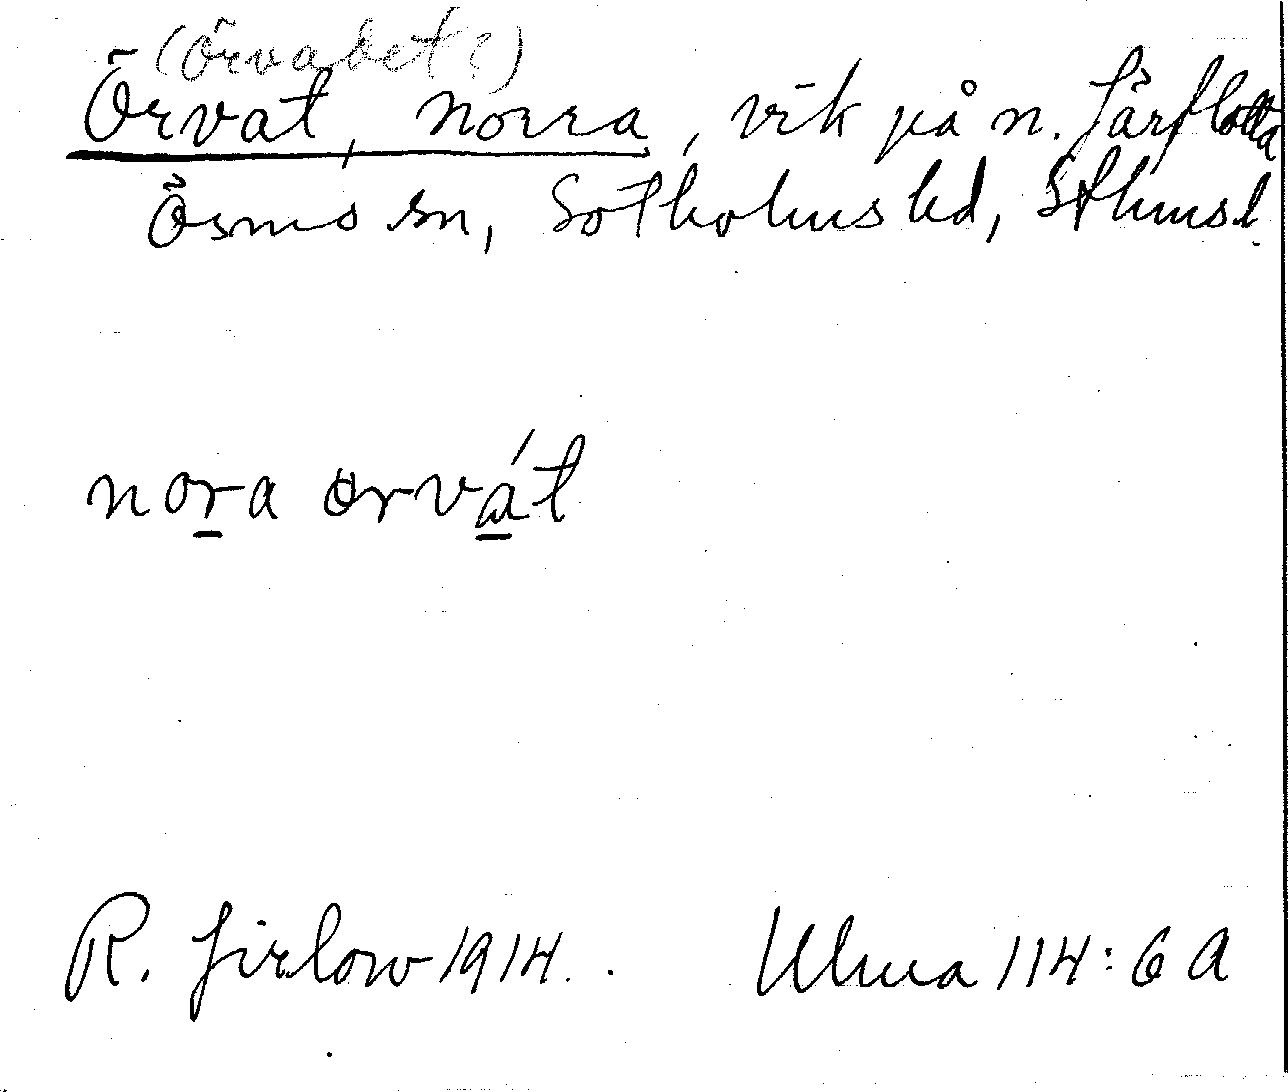 (Örvadet?)
Örvat, norra, vik på n. Järflotta
Ösmo sn, Sotholms hd, Sthms l.
nora ørvát
R. Jirlow 1914.
Ulma 114:6 A